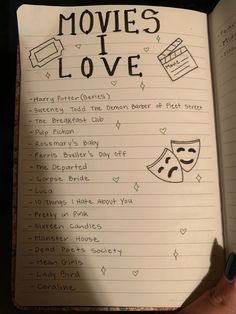 MOVIES
I
LOVE
MOVIE
- Harry Potter (Series)
- Sweeney Todd The Demon Barber of Fleet street
- The Breakfast Club
- Pulp Fiction
- Rosemary's Baby
- Ferris Bueller's Day off
- The Departed
- Corpse Bride
- Luca
- 10 Things I Hate About You
- Pretty in Pink
- Sixteen Candles
- Monster House
- Dead Poets Society
- Mean Girls
- Lady Bird
- Coraline